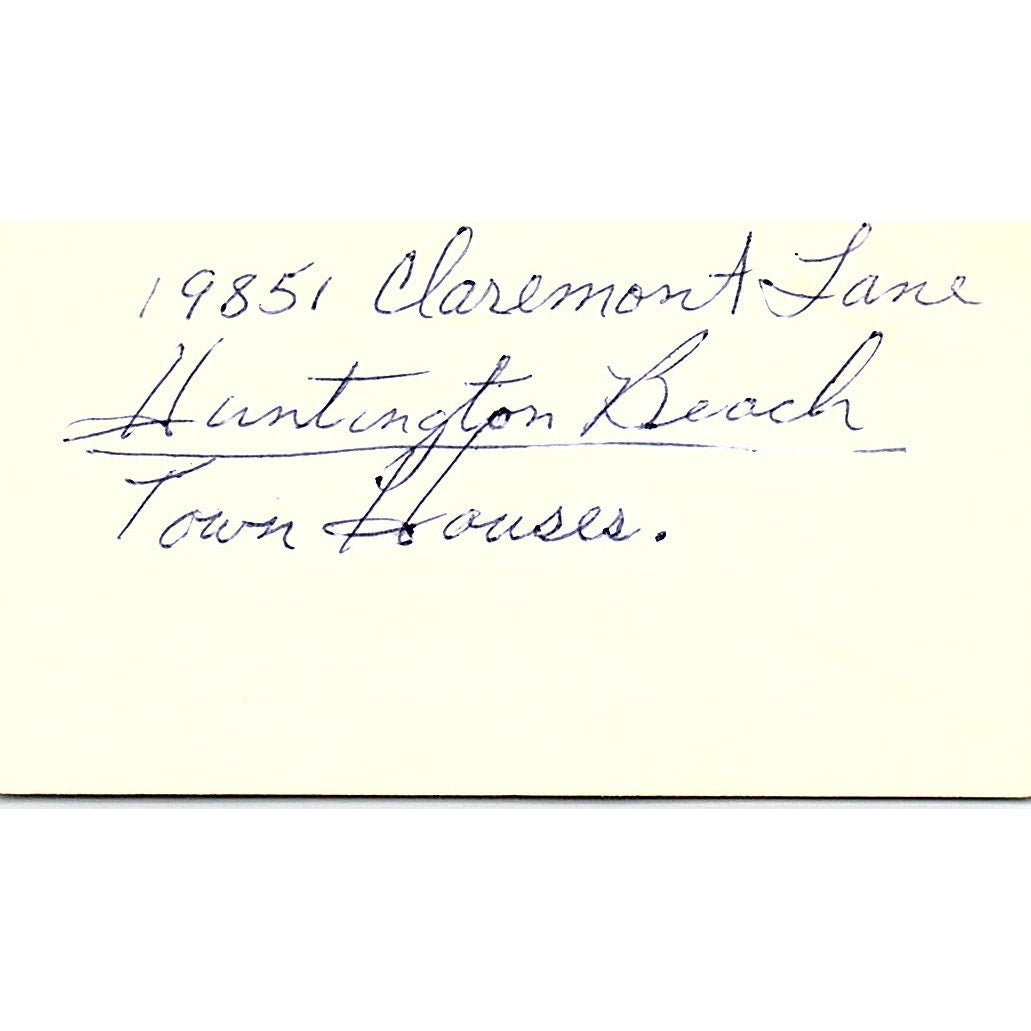 19851 Claremont Lane
Huntington Beach
Town Houses.